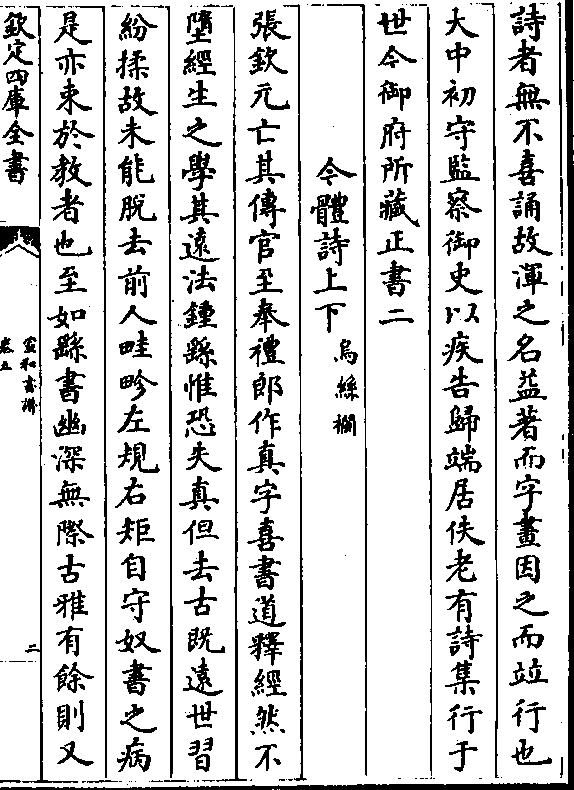 詩者無不喜誦故渾之名益著而字畫因之而竝行也
大中初守監察御史以疾告歸端居佚老有詩集行于
世今御府所藏正書二
今體詩上下烏絲欄
張欽元亡其傳官至奉禮郎作真字喜書道釋經然不
墮經生之學其遠法鍾繇惟恐失真但去古既遠世習
紛揉故未能脫去前人畦畛左規右矩自守奴書之病
是亦束於教者也至如繇書幽深無際古雅有餘則又
欽定四庫全書
宣和書譜
卷五
二